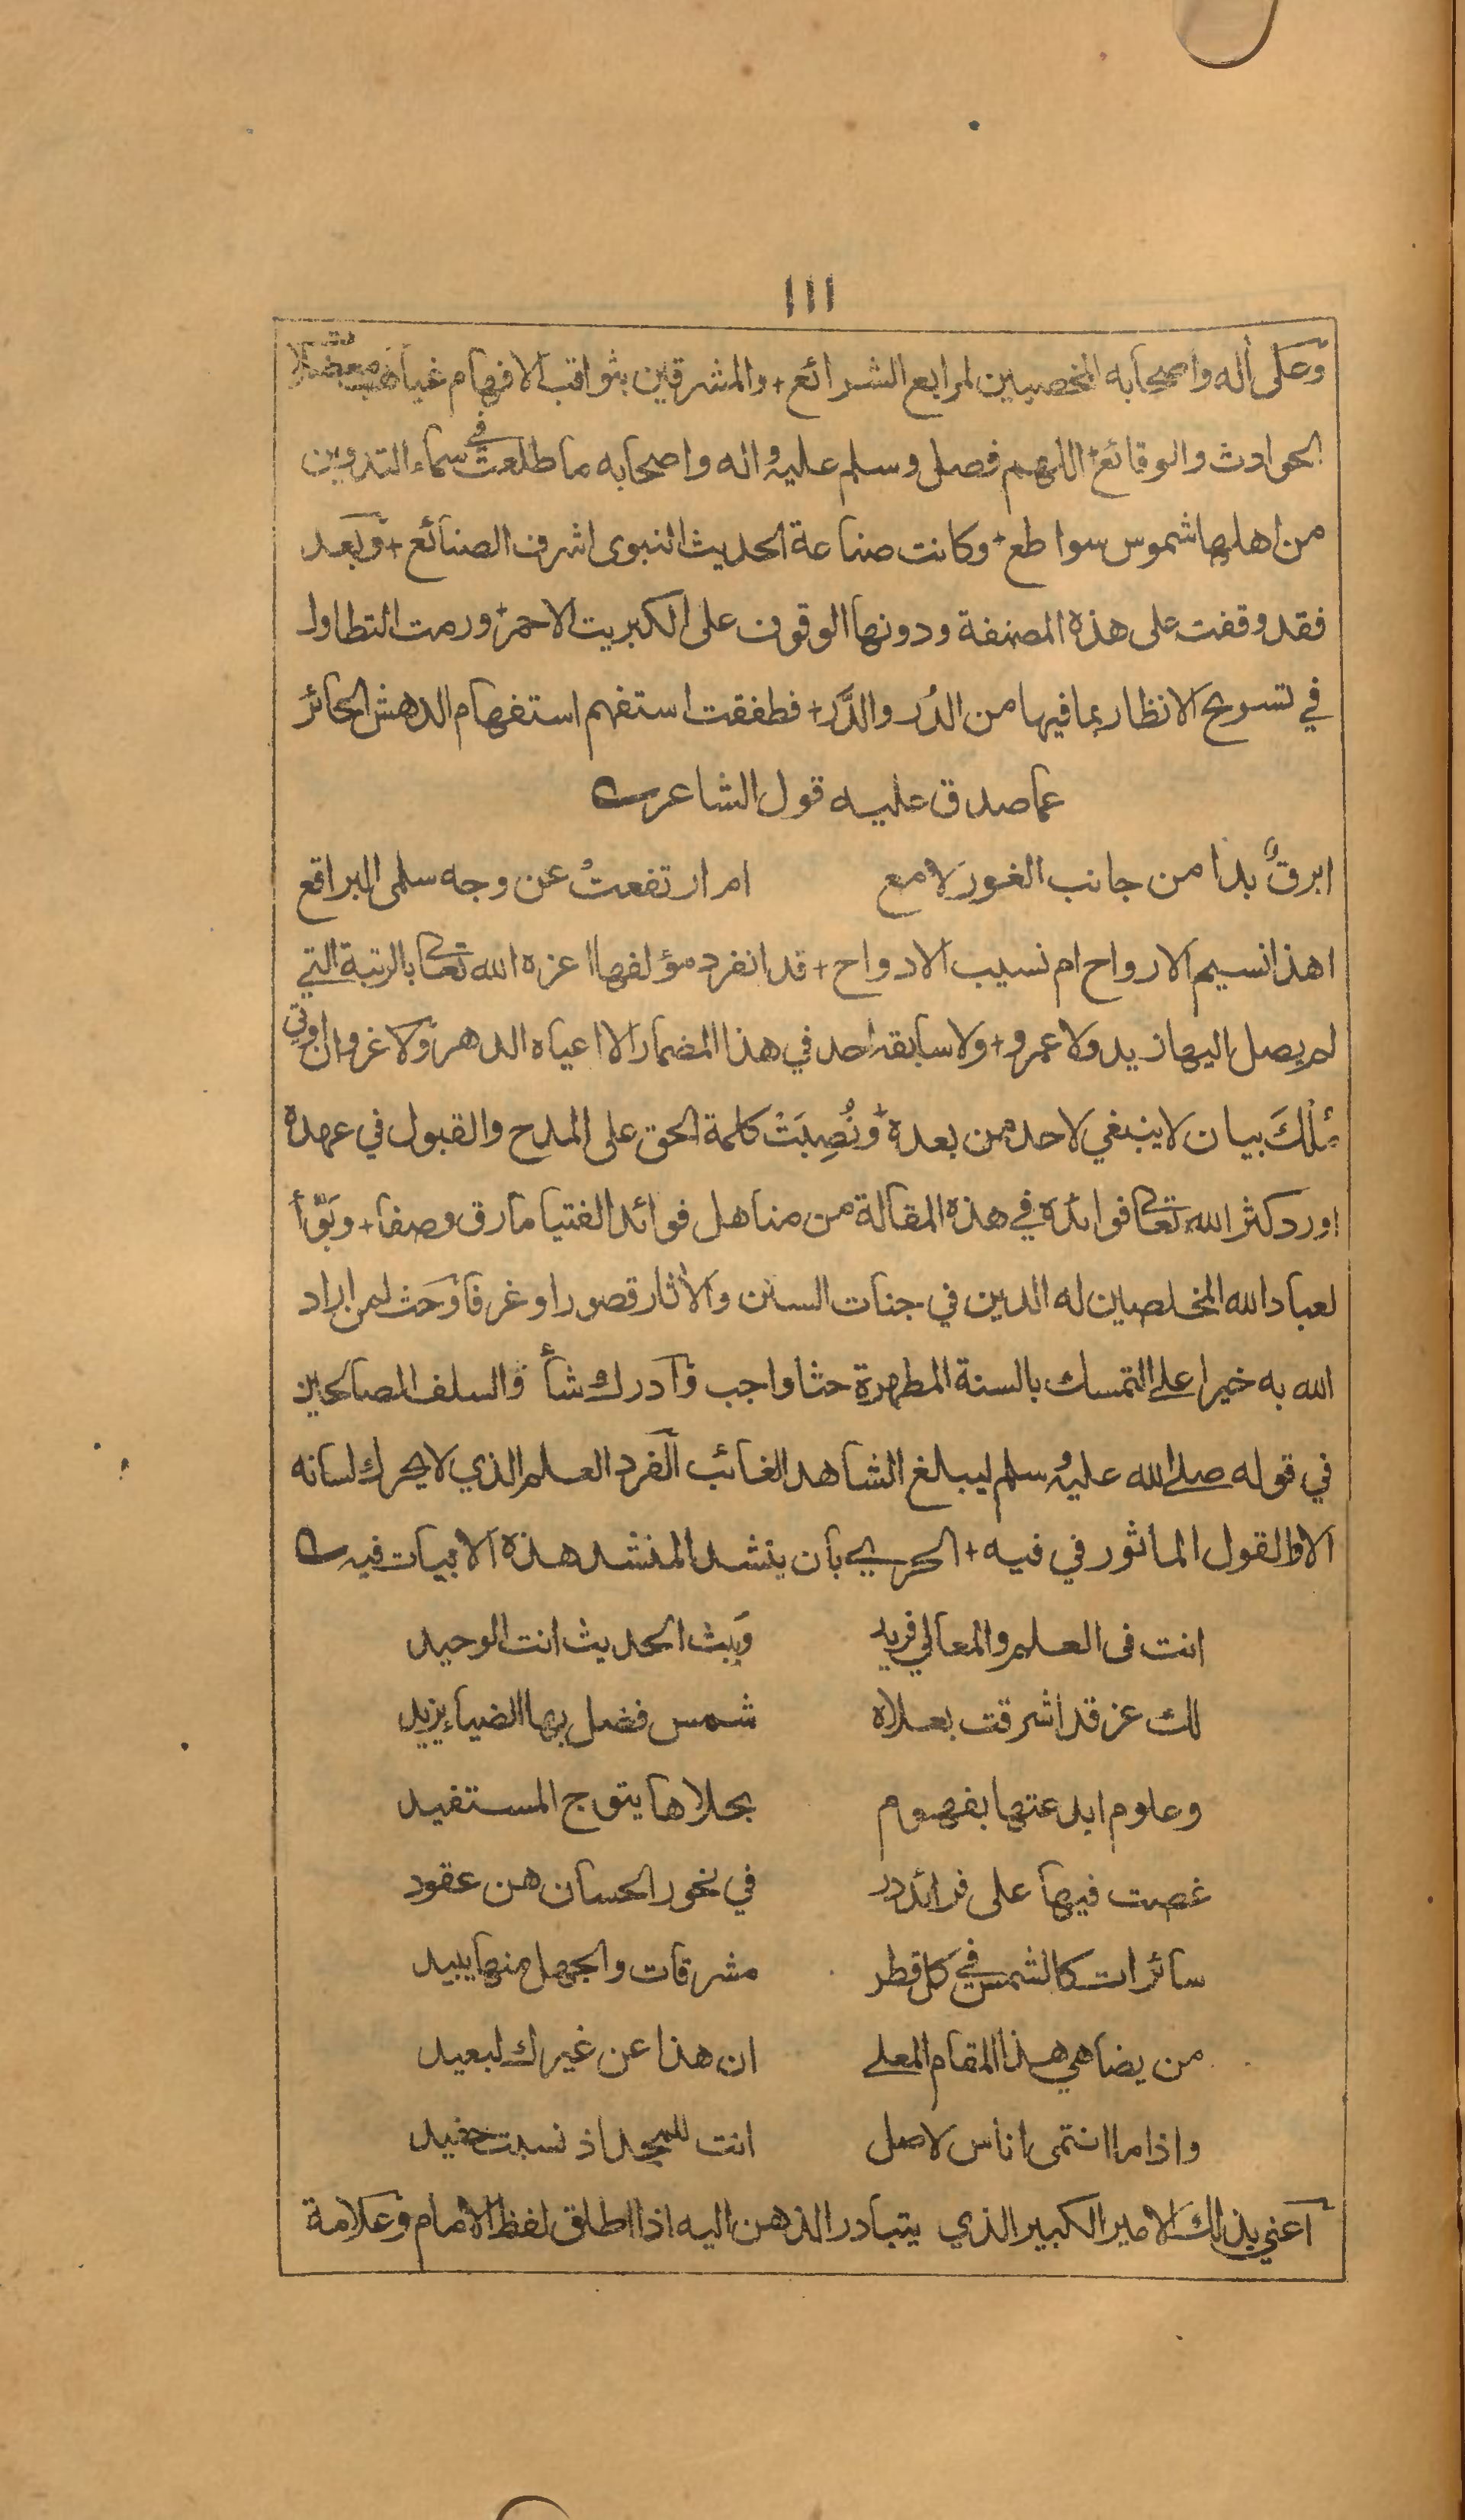 ١١١
وعلى أله واصحابه المخصبين لمرابع الشرائع + والمشرقين بثواقب الافهام غياهب معضلات
الحوادث والوقائع + اللهم فصل وسلم عليه واله واصحابه ما طلعت في سماء التدوين
من اهلها شموس سواطع + وكانت صناعة الحديث النبوى اشرف الصنائع + وبعد
فقد وقفت على هذه المصنفة ودونها الوقوف على الكبريت الاحمر + ورمت التطاول
في تسريح الانظار بما فيها من الدُر والدَّر + فطفقت استفهم استفهام الدهش الحائر
عما صدق عليه قول الشاعر
ابرقٌ بدا من جانب الغور لامع ام ارتفعتْ عن وجه سلمى البراقع
اهذا نسيم الارواح ام نسيب الادواح + قد انفرد مؤلفها اعزه الله تعالى بالرتبة التي
لم يصل اليها زيد ولا عمرو + ولا سابقه احد في هذا المضمار الا اعياه الدهر ولا غرو ان اوتي
مُلْكَ بيان لا ينبغي لاحد من بعده + ونُصِبَتْ كلمة الحق على المدح والقبول في عهده
اورد كثر الله تعالى فوائده في هذه المقالة من مناهل فوائد الفتيا ما رق وصفا + وبَوّأ
لعباد الله المخلصين له الدين في جنات السنن والأثار قصورا وغرفا وحث لمن اراد
الله به خيرا على التمسك بالسنة المطهرة حثا واجب وأدرك شأو السلف الصالحين
في قوله صلى الله عليه وسلم ليبلغ الشاهد الغائب الفرد العلم الذي لا يحرك لسانه
الا والقول الماثور في فيه + الحري بأن ينشد المنشد هذه الابيات فيه
انت فى العلم والمعالي فريد وببث الحديث انت الوحيد
لك عز قد اشرقت بعلاه شمس فضل بها الضياء يزيد
وعلوم ابدعتها بفهوم بحلاها يتوج المستفيد
غصت فيها على فرائد در في نحور الحسان هن عقود
سائرات كالشمس في كل قطر مشرقات والجهل منها يبيد
من يضاهي هذا المقام المعلى ان هذا عن غيرك لبعيد
واذا ما انتمى اناس لاصل انت للمجد اذ نسبت حفيد
أعني بذلك الامير الكبير الذي يتبادر الذهن اليه اذا اطلق لفظ الامام وعلامة